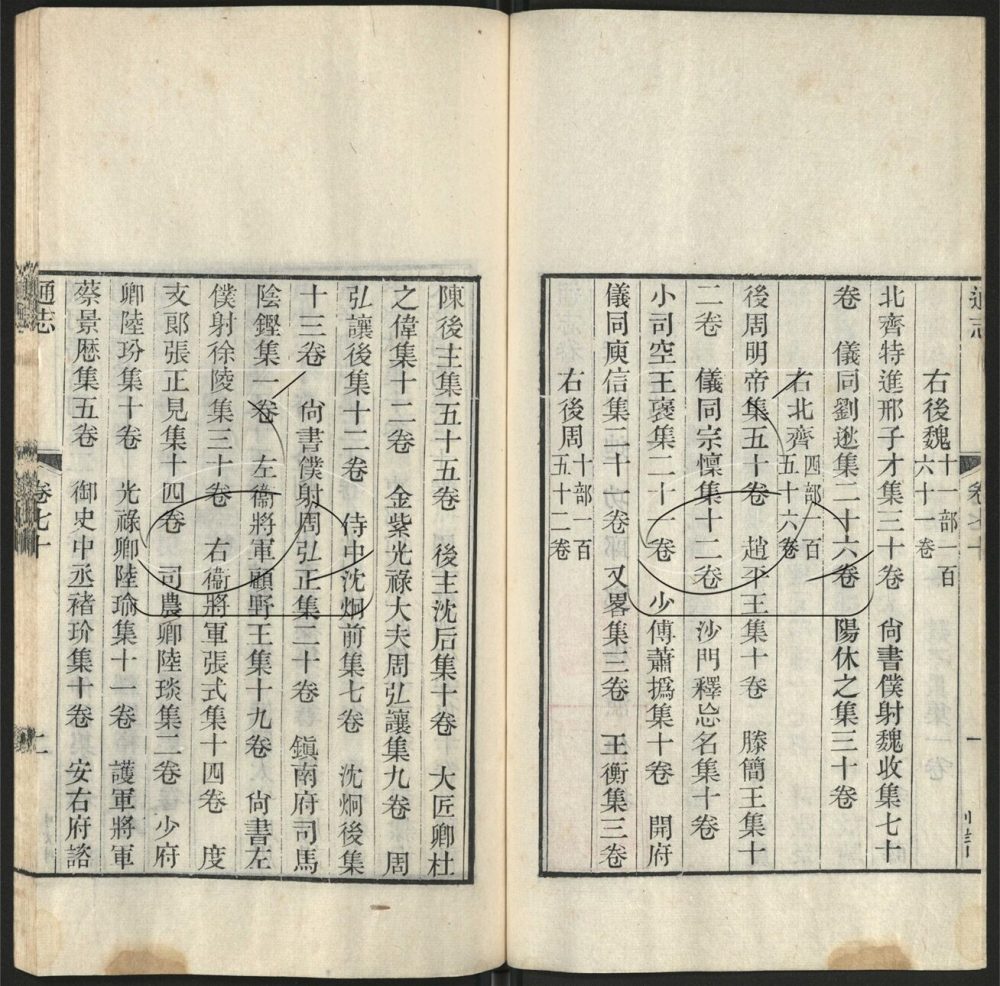 右後魏十一部一百六十一卷
北齊特進邢子才集三十卷　尚書僕射魏收集七十
卷　儀同劉逖集二十六卷　陽休之集三十卷
右北齊四部一百五十六卷
後周明帝集五十卷　趙平王集十卷　滕簡王集十
二卷　儀同宗懍集十二卷　沙門釋忘名集十卷
小司空王襃集二十一卷　少傅蕭撝集十卷　開府
儀同庾信集二十一卷　又畧集三卷　王衡集三卷
右後周十部一百五十二卷
陳後主集五十五卷　後主沈后集十卷　大匠卿杜
之偉集十二卷　金紫光祿大夫周弘讓集九卷　周
弘讓後集十二卷　侍中沈炯前集七卷　沈炯後集
十三卷　尚書僕射周弘正集二十卷　鎮南府司馬
陰鏗集一卷　左衞將軍顧野王集十九卷　尚書左
僕射徐陵集三十卷　右衞將軍張式集十四卷　度
支郎張正見集十四卷　司農卿陸琰集二卷　少府
卿陸玢集十卷　光祿卿陸瑜集十一卷　護軍將軍
蔡景厯集五卷　御史中丞褚玠集十卷　安右府諮
通志　卷七十　二